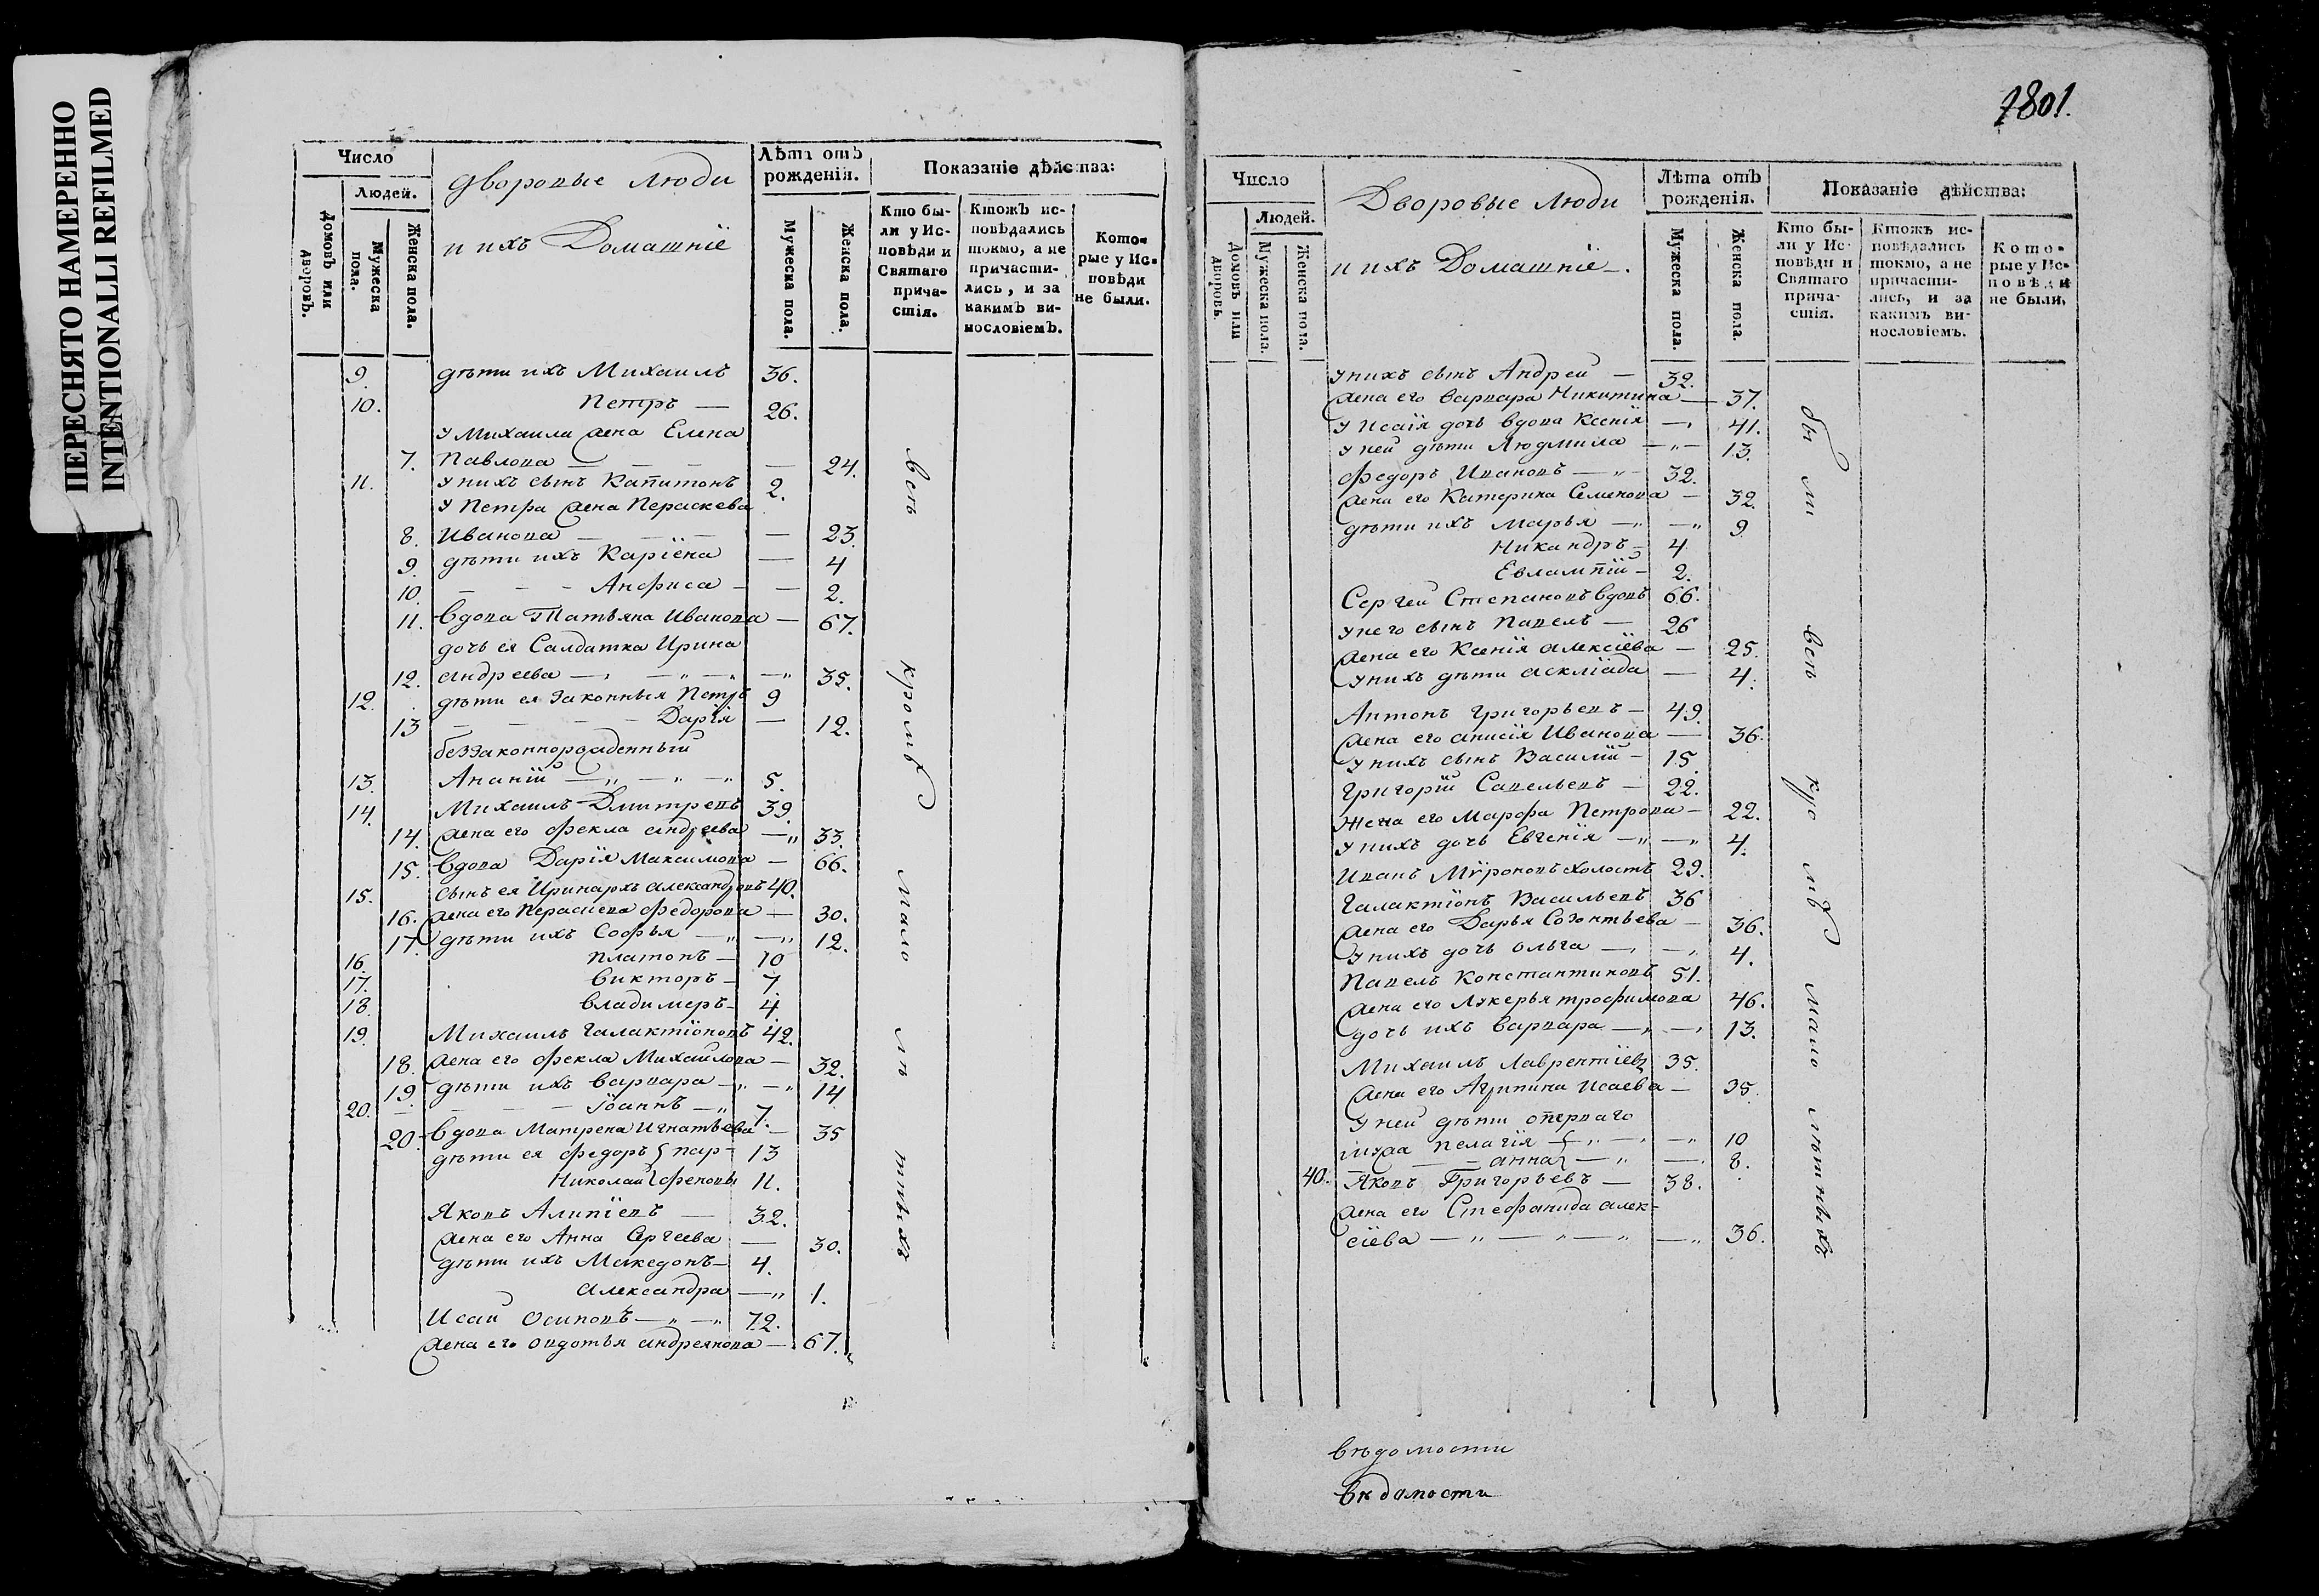 ПЕРЕСНЯТО НАМЕРЕННО
INTENTIONALLI REFILMED
Число
Людей.
Домовъ или дворовъ.
Мужеска пола.
Женска пола.
Дворовые Люди
и ихъ Домашніе
Лѣта отъ рожденія.
Мужеска пола.
Женска пола.
Показаніе дѣйства:
Кто бы-
ли у Ис-
повѣди и
Святаго
прича-
стія.
Ктожъ ис-
повѣдались
токмо, а не
причасти-
лись, и за
какимъ ви-
нословіемъ.
Кото-
рые у Ис-
повѣди
не были.
9. дѣти ихъ Михаилъ 36.
10. Петръ — 26.
у Михаила жена Елена
7. Павлова — — — — 24.
11. у нихъ сынъ Капитонъ 2.
у Петра жена Пераскева
8. Иванова — — — — 23.
9. дѣти ихъ Каріена — 4
10. — — — Анфиса — — 2.
11. вдова Татьяна Иванова — 67.
дочь ея Салдатка Ирина
12. андреева — — — — 35.
12. дѣти ея Законныя Петръ 9
13 — — — — Дарія — 12.
беззаконнорожденный
13. Ананій — „ — „ — „ 5.
14. Михаилъ Дмитревъ 39.
14. жена его Фекла андреева — „ 33.
15. вдова Дарія Максимова — 66.
15. сынъ ея Иринархъ александровъ 40.
16. жена его Перасиева Федорова — 30.
17. дѣти ихъ Софья — „ — „ 12.
16. Платонъ — 10
17. Викторъ — 7
18. Владимеръ — 4
19. Михаилъ Галактіоновъ 42.
18. жена его Фекла Михаилова — 32.
19. дѣти ихъ Варвара — „ — „ 14
20. — — — — Іоаннъ — „ 7.
20. вдова Матрена Игнатьева — 35
дѣти ея Федоръ } пар- 13
Николай } феновы 11.
Яковъ Алипіевъ — 32.
жена его Анна Сергеева — 30.
дѣти ихъ Македонъ — 4.
Александра — „ 1.
Исаи Осиповъ — „ — „ 72.
жена его овдотья андреянова — 67.
всѣ кромѣ мало лѣтнѣхъ
1801.
Число
Людей.
Домовъ или дворовъ.
Мужеска пола.
Женска пола.
Дворовые Люди
и ихъ Домашніе —.
Лѣта отъ рожденія.
Мужеска пола.
Женска пола.
Показаніе дѣйства:
Кто бы-
ли у Ис-
повѣди и
Святаго
прича-
стія.
Ктожъ ис-
повѣдались
токмо, а не
причасти-
лись, и за
какимъ ви-
нословіемъ.
Кото-
рые у Ис-
повѣди
не были.
у нихъ сынъ Андрей — 32.
жена его Варвара Никитина — 37.
у Исаія дочь вдова Ксенія — „ 41.
у ней дѣти Людмила — „ — 13.
Федоръ Ивановъ — „ — 32.
жена его Катерина Семенова — 32.
дѣти ихъ Марья — „ — „ 9
Никандръ — 4
Евлампій — 2.
Сергей Степановъ вдовъ 66.
у него сынъ Павелъ — 26
жена его Ксенія алексіева — 25.
у нихъ дѣти асклїада — 4.
Антонъ Григорьевъ — 49.
жена его анисія Иванова — 36.
у нихъ сынъ Василій — 15.
Григорій Савельевъ — 22.
Жена его Марфа Петрова — 22.
у нихъ дочь Евгенія — „ — „ 4.
Иванъ Мѵроновъ холостъ 29.
Галактіонъ Васильевъ 36
жена его Дарья Созонтьева — 36.
у нихъ дочь ольга — „ — „ 4.
Павелъ Константиновъ 51.
жена его Лукерья трофимова 46.
дочь ихъ Варвара — „ — „ 13.
Михаилъ Лаврентіевъ 35.
жена его Агрипина Исаева — 35.
у ней дѣти отперваго
мужа Пелагія — „ — „ — „ 10
— — анна — „ — „ 8.
40. Яковъ Григорьевъ — 38.
жена его Стефанида алек-
сіева — „ — „ — „ — „ 36.
были всѣ кромѣ мало лѣтнѣхъ
вѣдомости
вѣдомости